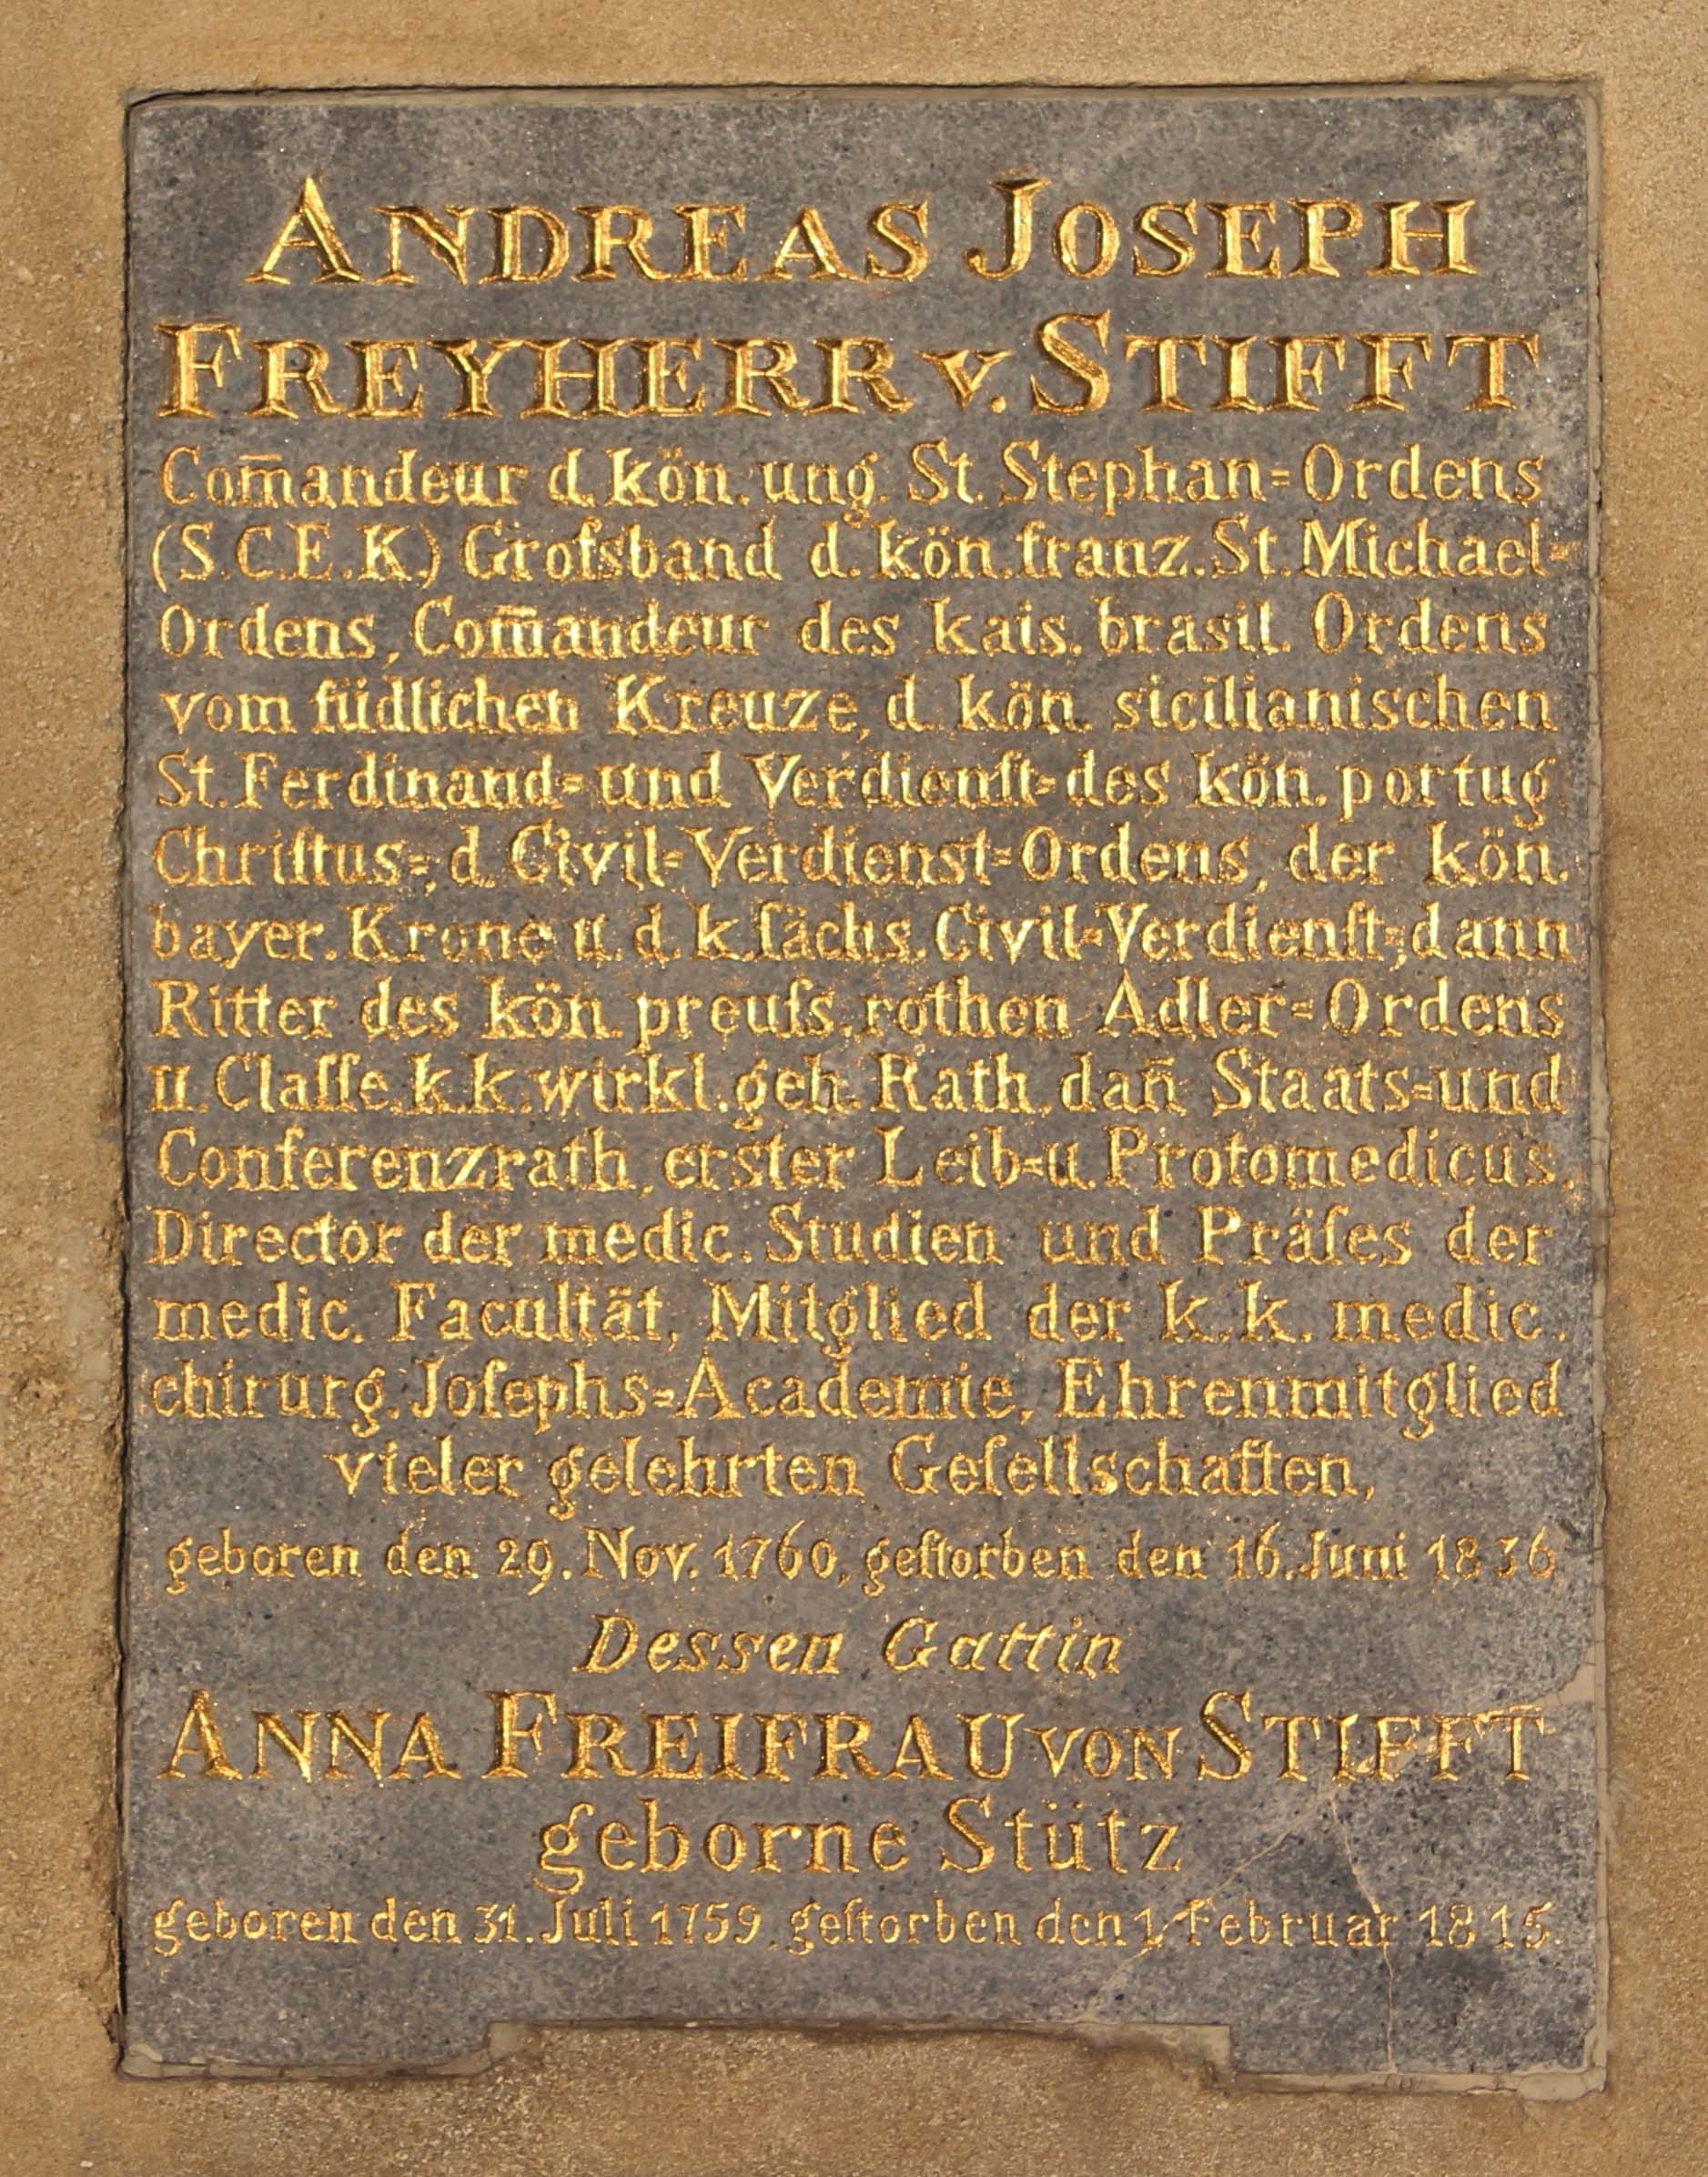 ANDREAS JOSEPH
FREYHERR v. STIFFT
Com̄andeur d. kön. ung. St. Stephan=Ordens
(S.C.E.K.) Groſsband d. kön. franz. St. Michael=
Ordens, Com̄andeur des kais. brasil. Ordens
vom ſüdlichen Kreuze, d. kön. sicilianischen
St. Ferdinand= und Verdienſt= des kön. portug.
Chriſtus=, d. Civil=Verdienst=Ordens, der kön.
bayer. Krone u. d. k. ſächs. Civil=Verdienſt=, dann
Ritter des kön. preuſs. rothen Adler=Ordens
II. Claſſe, k. k. wirkl. geh. Rath, dan̄ Staats= und
Conferenzrath, erster Leib= u. Protomedicus,
Director der medic. Studien und Präſes der
medic. Facultät, Mitglied der k. k. medic.
chirurg. Joſephs=Academie, Ehrenmitglied
vieler gelehrten Geſellschaften,
geboren den 29. Nov. 1760, geſtorben den 16. Juni 1836
Dessen Gattin
ANNA FREIFRAU VON STIFFT
geborne Stütz
geboren den 31. Juli 1759, geſtorben den 1. Februar 1815.